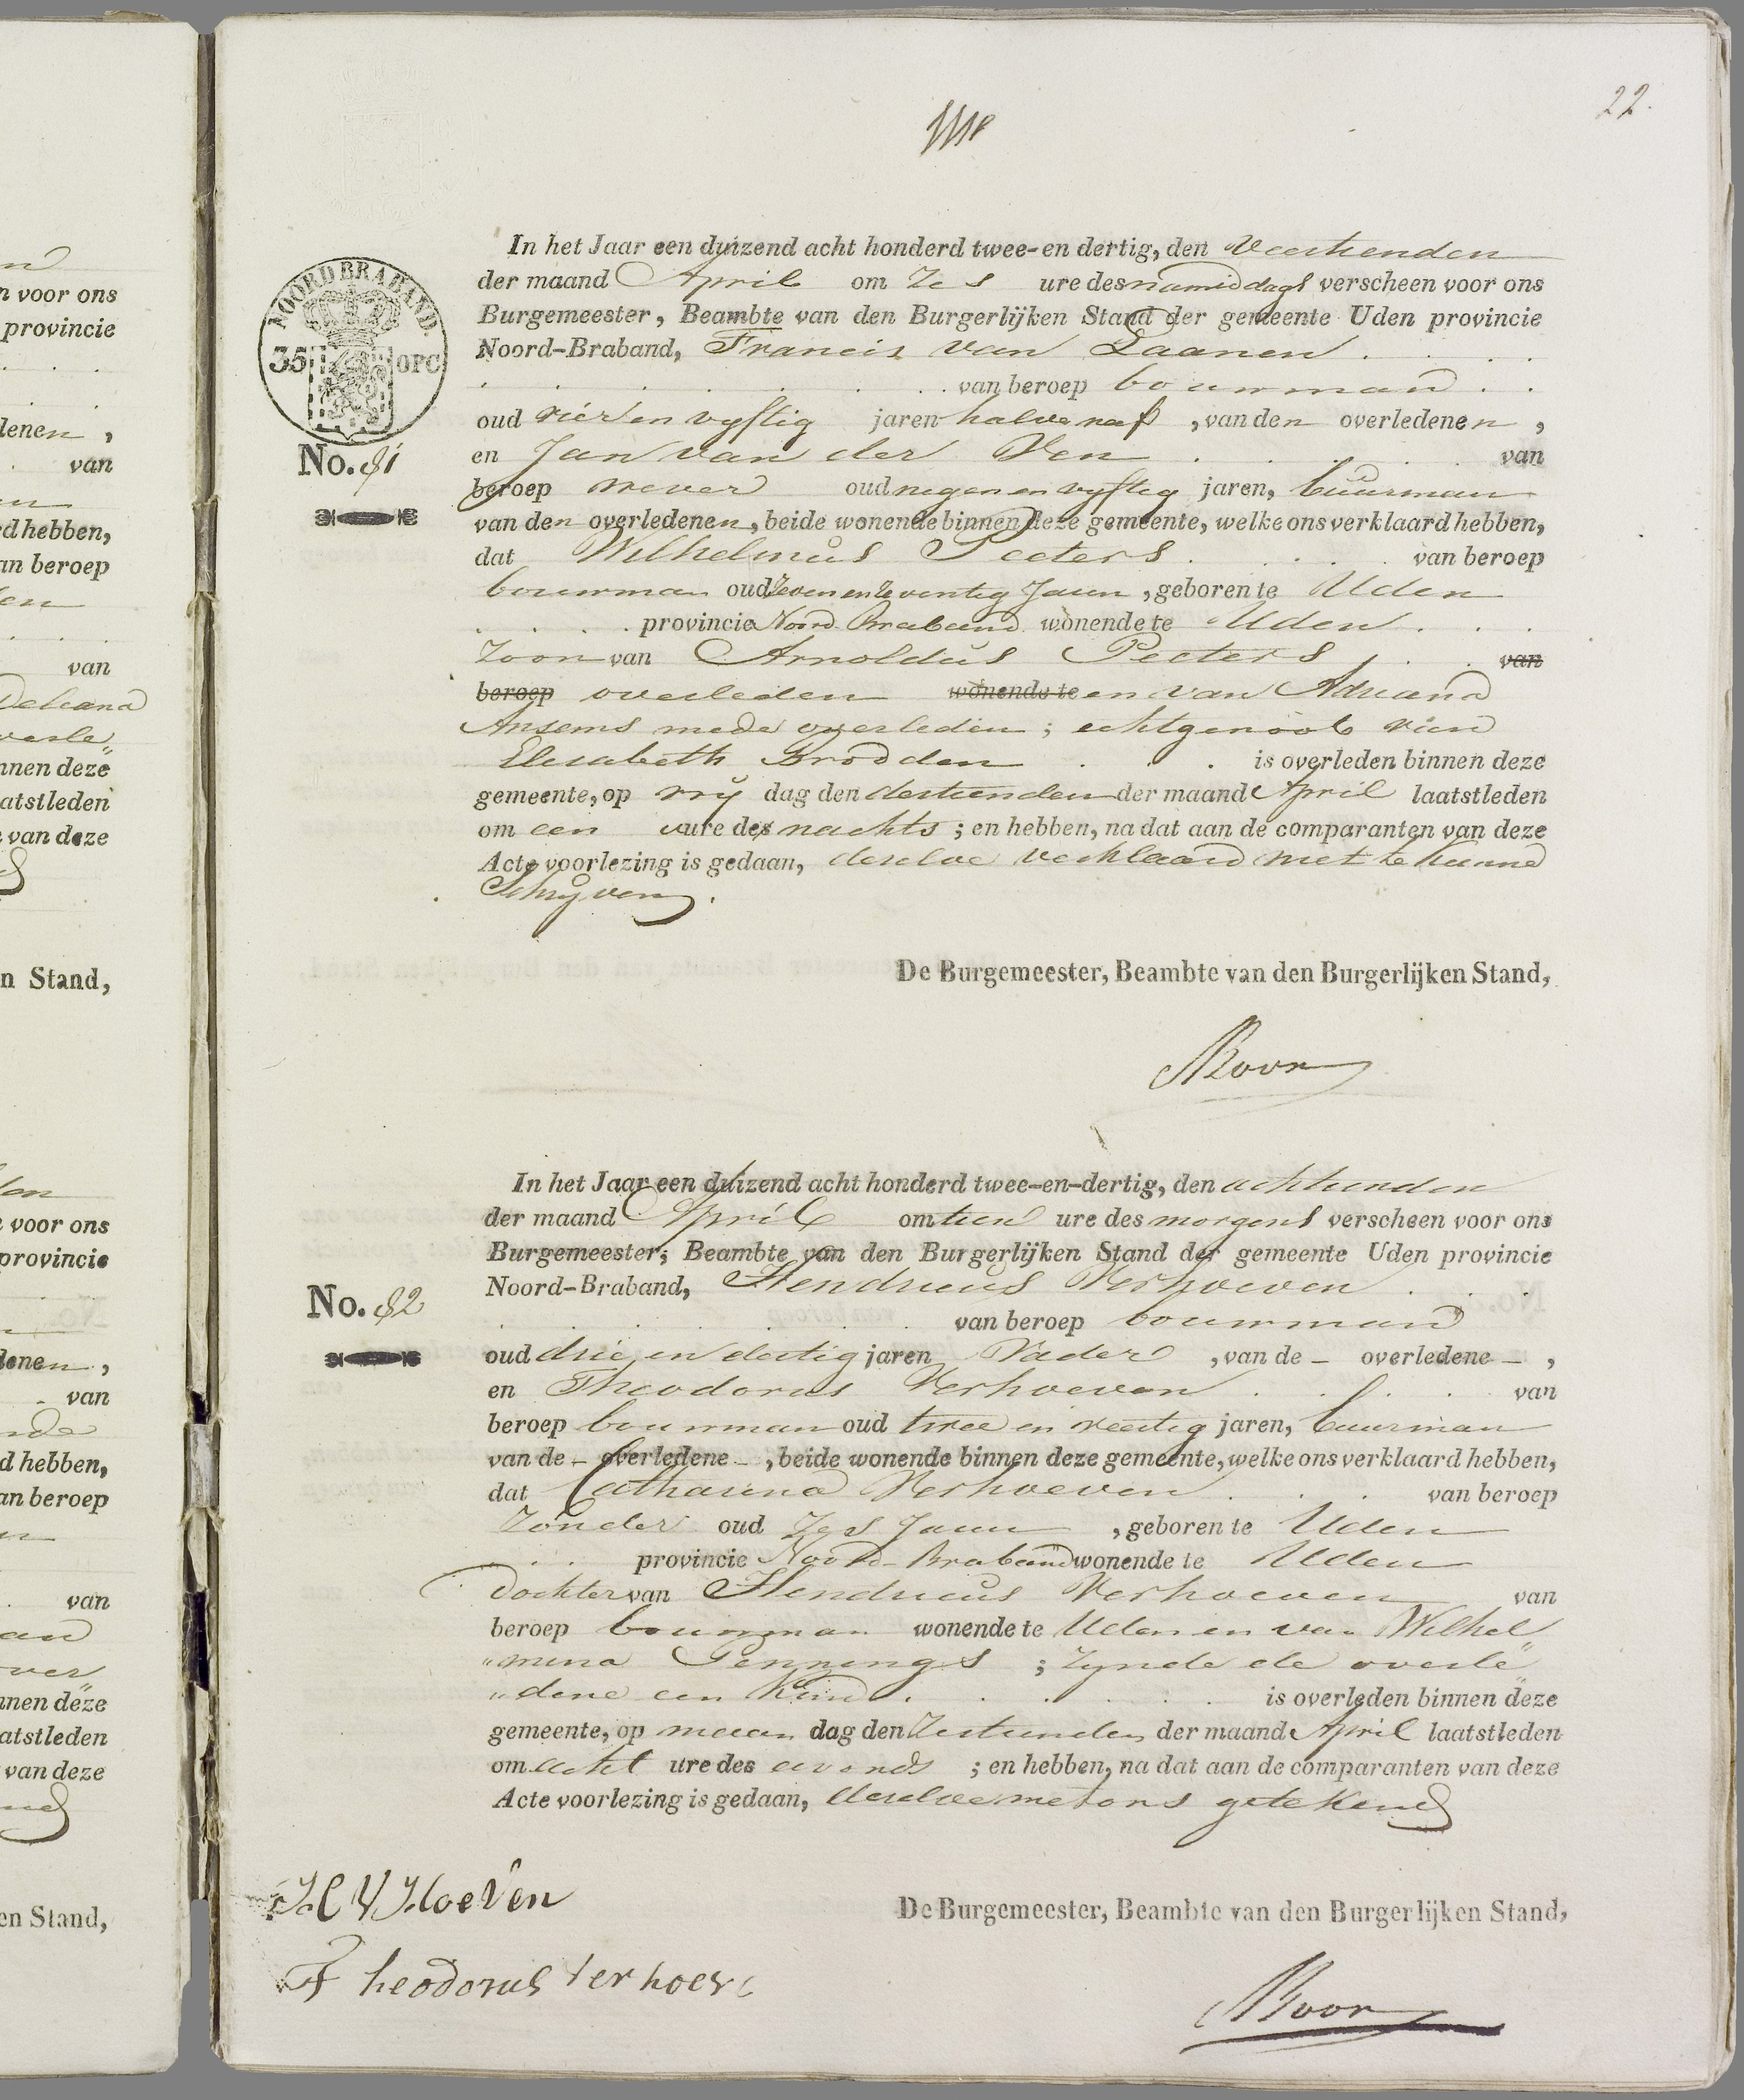 22.
In het Jaar een duizend acht honderd twee-en dertig, den Veertienden
der maand April om Zes ure des namiddags verscheen voor ons
Burgemeester, Beambte van den Burgerlijken Stand der gemeente Uden provincie
Noord-Braband, Francis van Laanen . . . .
. . . . . . . van beroep bouwman . .
oud vier en vyftig jaren halve neef , van den overledenen ,
en Jan van der Ven . . . . . van
beroep wever oud negen en vyftig jaren, buurman
van den overledenen, beide wonende binnen deze gemeente, welke ons verklaard hebben,
dat Wilhelmus Peeters . . . . van beroep
bouwman oud Zeven en Zeventig Jaren , geboren te Uden
. . . . provincie Noord Braband wonende te Uden . . .
Zoon van Arnoldus Peeters . . . van
beroep overleden wonende te en van Adriana
Ansems mede overleden ; echtgenoot van
Elisabeth Brodden . . . is overleden binnen deze
gemeente, op vrij dag den dertienden der maand April laatstleden
om een ure des nachts ; en hebben, na dat aan de comparanten van deze
Acte voorlezing is gedaan, deselve verklaard niet te kunne
Schryven .
De Burgemeester, Beambte van den Burgerlijken Stand,
NOORDBRABAND.
35 OPC
No. 81
In het Jaar een duizend acht honderd twee-en-dertig, den achtienden
der maand April om tien ure des morgens verscheen voor ons
Burgemeester, Beambte van den Burgerlijken Stand der gemeente Uden provincie
Noord-Braband, Hendricus Verhoeven . . .
. . . . . . van beroep bouwman
oud drie en dertig jaren Vader , van de - overledene - ,
en Theodorus Verhoeven . . . . van
beroep bouwman oud twee en veertig jaren, buurman
van de - overledene - , beide wonende binnen deze gemeente, welke ons verklaard hebben,
dat Catharina Verhoeven . . . van beroep
Zonder oud Zes Jaren , geboren te Uden
. . . provincie Noord-Braband wonende te Uden
Dochter van Hendricus Verhoeven van
beroep bouwman wonende te Uden en van Wilhel
"mina Pennings ; Zynde de overle"
"dene een Kind . . . . . . is overleden binnen deze
gemeente, op maan dag den Zestienden der maand April laatstleden
om acht ure des avonds ; en hebben, na dat aan de comparanten van deze
Acte voorlezing is gedaan, deselve met ons getekend
No. 82
De Burgemeester, Beambte van den Burgerlijken Stand,
H V Hoeven
Theodorus Verhoeve
n voor ons
provincie
lenen ,
van
d hebben,
an beroep
van
nnen deze
atstleden
van deze
n Stand,
voor ons
provincie
lenen ,
van
d hebben,
an beroep
van
nnen deze
atstleden
van deze
en Stand,